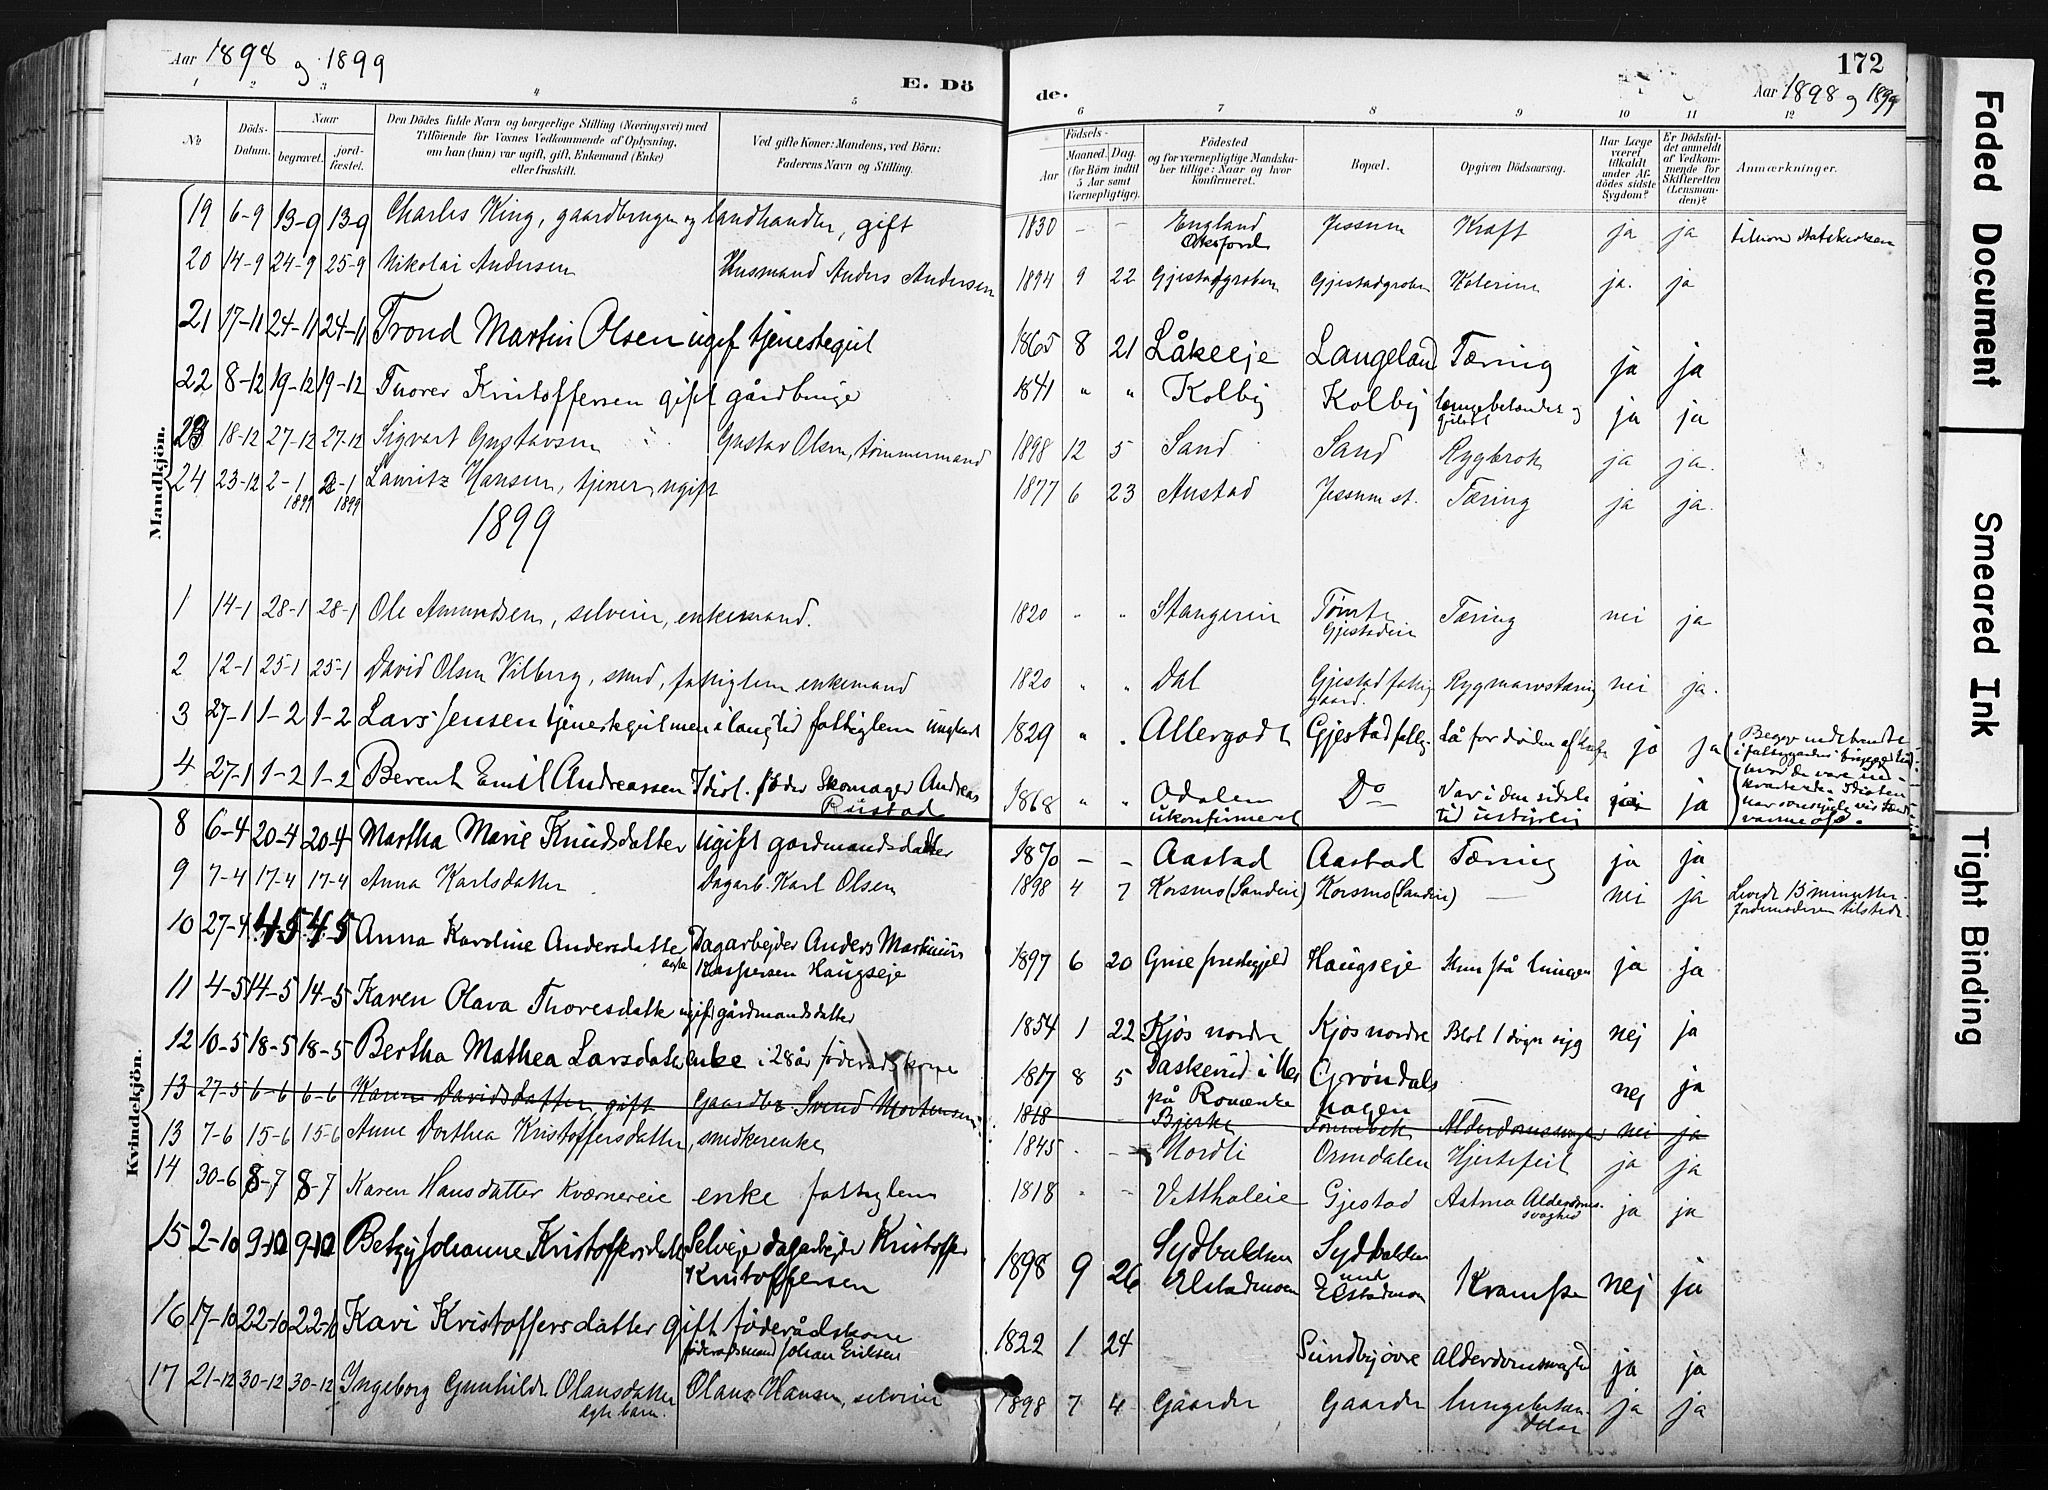 Aar 1898 og 1899
E. Dö
de.
172
Aar 1898 og 1899
1 2 3 4 5 6 7 8 9 10 11 12
№
Döds-
Datum.
Naar
begravet.
jord-
fæstet.
Den Dödes fulde Navn og borgerlige Stilling (Næringsvei) med
Tilföiende for Voxnes Vedkommende af Oplysning,
om han (hun) var ugift, gift, Enkemand (Enke)
eller fraskilt.
Ved gifte Koner: Mandens, ved Börn:
Faderens Navn og Stilling.
Födsels-
Aar
Maaned. Dag.
(for Börn indtil
5 Aar samt
Værnepligtige).
Födested
og for værnepligtige Mandska-
ber tillige: Naar og hvor
konfirmeret.
Bopæl.
Opgiven Dödsaarsag.
Har Læge
været
tilkaldt
under Af-
dödes sidste
Sygdom?
Er Dödsfal-
det anmeldt
af Vedkom-
mende for
Skifteretten
(Lensman-
den)?
Anmærkninger.
Mandkjön.
19 6-9 13-9 13-9 Charles King, gaardbruger og landhandler, gift 1830 – – England Oksford Jessum Kræft ja ja
20 14-9 24-9 25-9 Nikolai Andersen Husmand Anders Andersen 1894 9 22 Gjestadgroben Gjestadgroben Kolerine ja. ja
21 17-11 24-11 24-11 Trond Martin Olsen ugif tjenestegut 1865 8 21 Låkeeje Langeland Tæring ja ja
22 8-12 19-12 19-12 Thorer Kristoffersen gift gårdbruge 1841 " " Kolby Kolby ja ja
23 18-12 27-12 27-12 Sigvart Gustavsen Gustav Olsen, tømmermand 1898 12 5 Sand Sand Rygbrok ja ja.
24 23-12 2-1 1899 2-1 1899 Lauritz Hansen, tjener, ugift 1877 6 23 Austad Jessum st. Tæring ja ja.
1899
1 14-1 28-1 28-1 Ole Amundsen, selveier, enkemand. 1820 " " Stangerein Tømte Gjestadeie Tæring nei ja
2 12-1 25-1 25-1 David Olsen Vilberg, smed, fattiglem enkemand 1820 " " Dal Gjestad fattig gaard. Rygmarvstæring nei ja.
3 27-1 1-2 1-2 Lars Jensen tjenestegut men i lang tid fattiglem ungkarl 1829 " " Allergodt Gjestad fattig- Lå for døden af ja ja
4 27-1 1-2 1-2 Berent Emil Andreassen Idiot. Fader Skomager Andreas Rustad 1868 " " Odalen ukonfirmeret Do Var i den sidste tid ustyrlig ja
Begge indebrændte
Kvindekjön.
8 6-4 20-4 20-4 Martha Marie Knudsdatter ugift gardmandsdatter 1870 – – Aastad Aastad Tæring ja ja
9 7-4 17-4 17-4 Anna Karlsdatter Dagarb. Karl Olsen 1898 4 7 Korsmo (Sandeie) Korsmo (Sandeie) — nei ja Levede 15 minutter. Jordemoderen tilstede.
10 27-4 4-5 4-5 Anna Karoline Andersdatter ægte Dagarbejder Anders Martinius Kaspersen Haugseje 1897 6 20 Grue prestegjeld Haugseje ja ja
11 4-5 14-5 14-5 Karen Olava Thoresdatte ugift gårdmandsdatter 1854 1 22 Kjos nordre Kjos nordre Blot 1 døgn syg nej ja
12 10-5 18-5 18-5 Bertha Mathea Larsdatter enke i 28 år føderadskone 1817 8 5 Daskerud i Nes på Romerike Grøndals hagen nej ja
13 27-5 6-6 6-6 Karen Davidsdatter, gift Gaardbr Svend Mortensen 1818 Bjerke Alderdomssvaghed nei ja
13 7-6 15-6 15-6 Anne Dorthea Kristoffersdatter, snedkerenke 1845 – – Nordli Ormdalen Hjertefeil ja ja
14 30-6 8-7 8-7 Karen Hansdatter Kværnereie enke fattiglem 1818 " – Vetthaleie Gjestad Astma Alderdoms- svaghed ja ja
15 2-10 9-10 9-10 Betzy Johanne Kristoffersdatt Selveje dagarbejder Kristoffer Kristoffersen 1898 9 26 Elstadmoen Elstadmoen Krampe nej ja
16 17-10 22-10 22-10 Kari Kristoffersdatter gift föderådskone föderadsmand Johan Eriksen 1822 1 24 Sundby øvre Alderdomssvaghed ja ja
17 21-12 30-12 30-12 Ingeborg Gunhilde Olausdatter ægte barn. Olaus Hansen, selveier 1898 7 4 Gaarder Gaarder lungebetæn- delse ja ja
Faded Document
Smeared Ink
Tight Binding